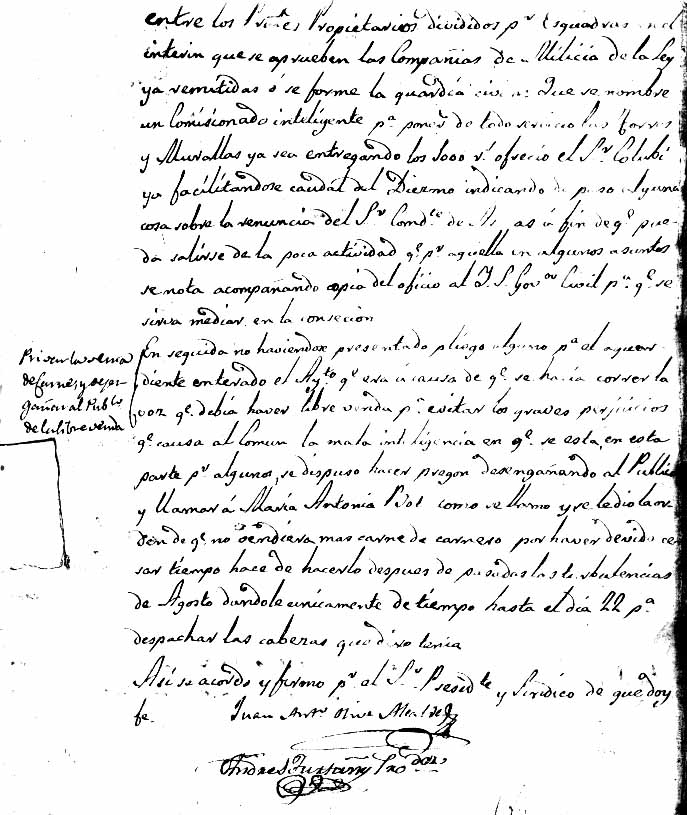 entre los Pral.es Propietarios divididos p.r Esquadras en el
interin que se aprueben las Compañias de Milicia de la Ley
ya remitidas ó se forme la guardia civica: Que se nombre
un Comisionado inteligente p.a poner de todo servicio las Torres
y Murallas ya sea entregando los 3000 r.s ofrecio el S.r Colubi
ya facilitandose caudal del Diezmo indicando de paso alguna
cosa sobre la renuncia del S.r Com.dte de As, as á fin de q.e pue-
da salirse de la poca actividad q.e p.r aquella en algunos asuntos
se nota acompañando copia del oficio al S. Gov.or Civil p.a q.e se
sirva mediar en la consecion
En seguida no haviendose presentado pliego alguno p.a el aguar-
diente enterado el Ay.to q.e era á causa de q.e se hacia correr la
voz q.e debia haver libre venda p.a evitar los graves perjuicios
q.e causa al Comun la mala inteligencia en q.e se está, en esta
parte p.r algunos, se dispuso hacer pregon desengañando al Public
y llamar á Maria Antonia Bol como se llamo y se le dio la or-
den de q.e no vendiera mas carne de carnero por haver devido ce
sar tiempo hace de hacerlo despues de pasadas las turbulencias
de Agosto dandole unicamente de tiempo hasta el dia 22 p.a
despachar las cabezas que dixo tenia
Asi se acordó y firmo p.r el S.r Presid.te y Sindico de que doy
fe.
Juan Ant.o Alcalde
Andres
la venda
de Carne, y desen-
gañar al Publ.o
de la libre venda